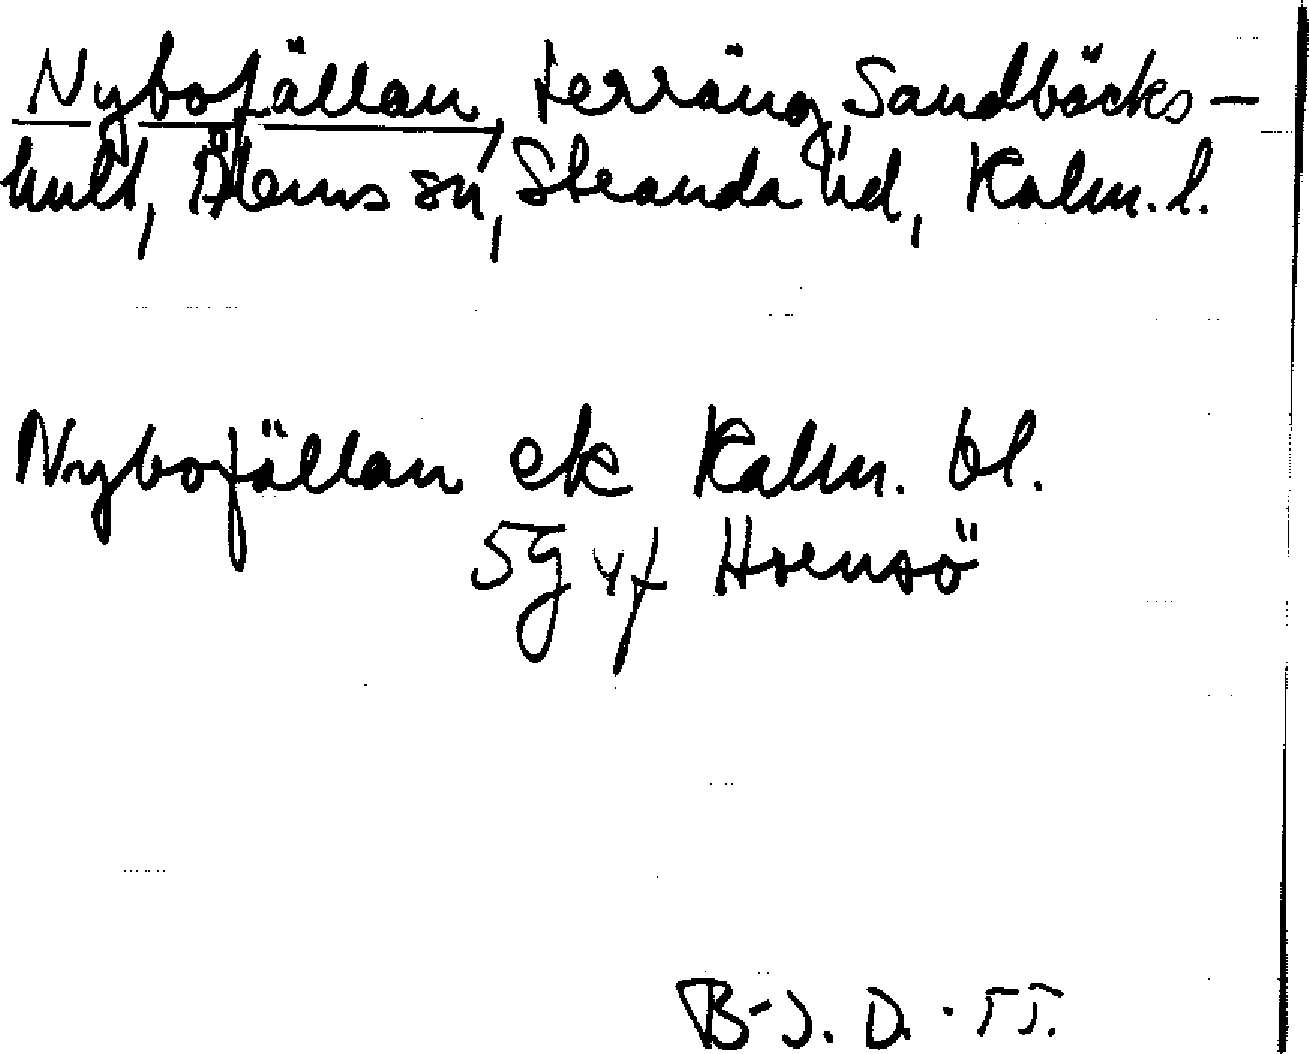 Nybofällan, terräng, Sandbäcks-
hult, Ålems sn, Stranda hd, Kalm. l.
Nybofällan ek Kalm. bl.
5g vf Hornsö
B-J. D. 55.